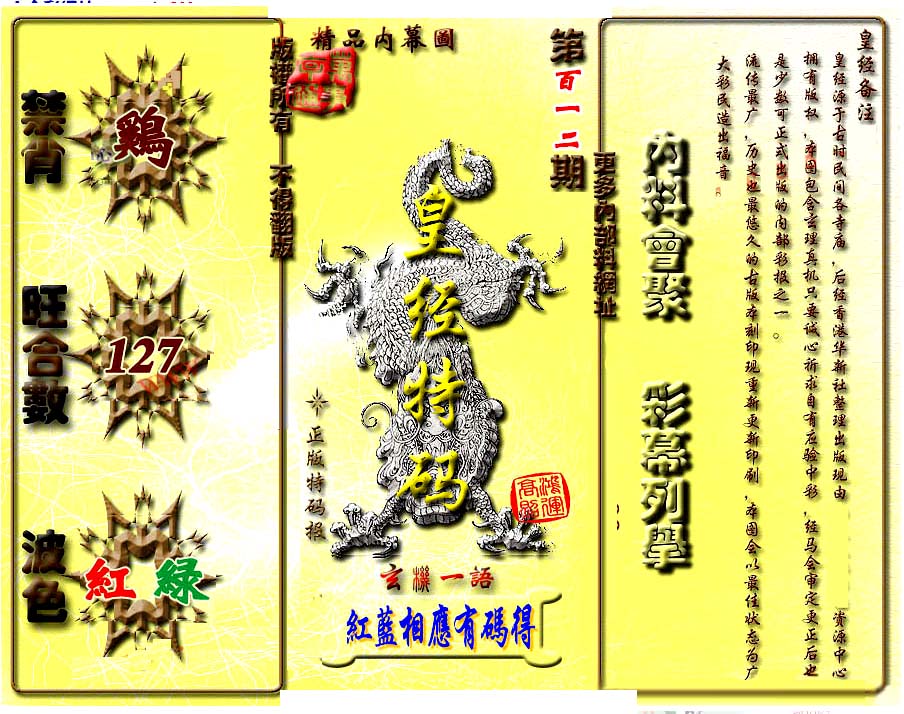 精品内幕圖
版權所有 不得翻版
禁肖
鷄
旺合數
127
波色
紅 綠
第百一二期
更多内部料網址
皇经特码
正版特码报
鴻運高照
玄機一語
紅藍相應有碼得
内料會聚
彩幕列舉
皇经备注
皇经源于古时民间各寺庙，后经香港华新社整理出版现由 资源中心
拥有版权，本图包含玄理真机只要诚心祈求自有应验中彩，经马会审定更正后也
是少数可正式出版的内部彩报之一。
流传最广，历史也最悠久的古版本刻印现重新更新印刷，本图会以最佳状态为广
大彩民造出福音